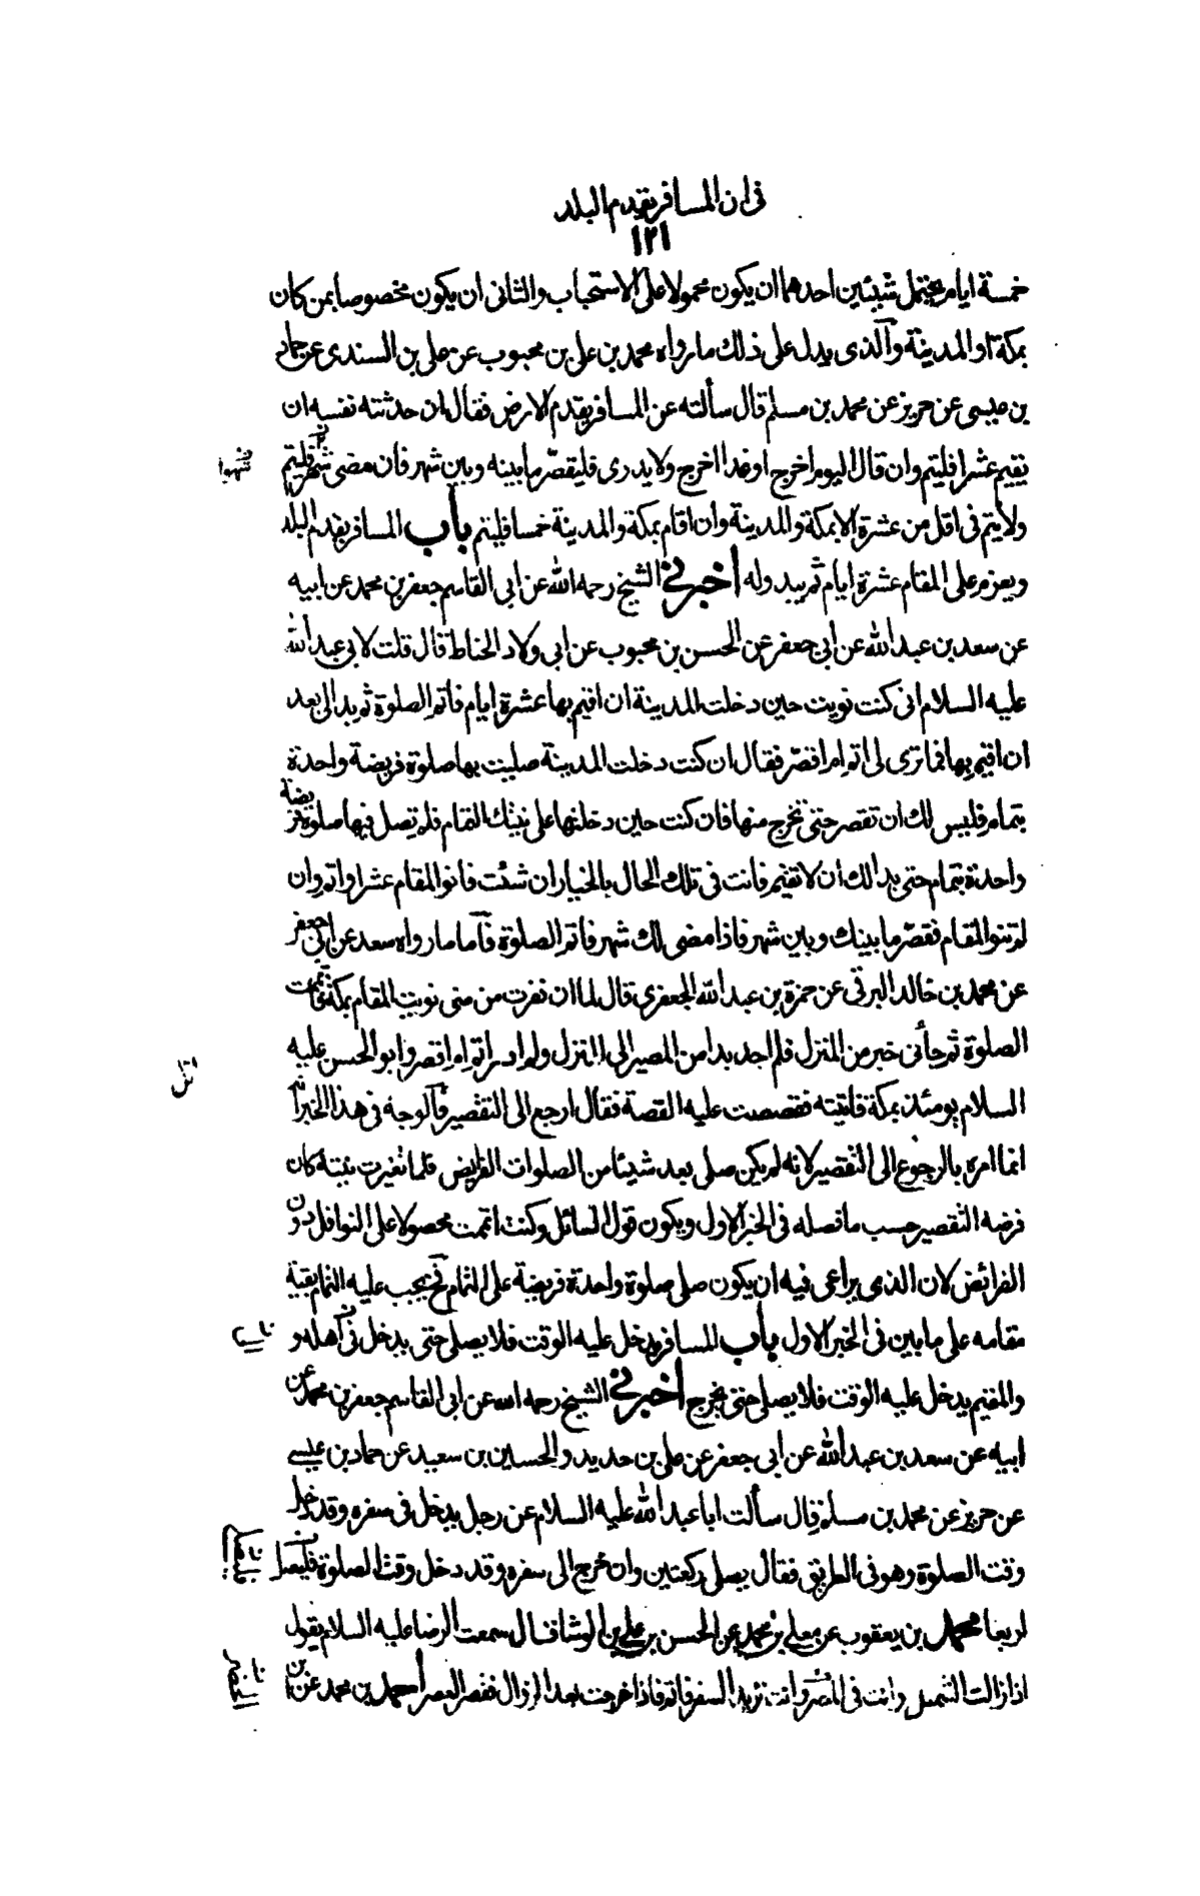 في ان المسافر يقدم البلد
١٢١
خمسة ايام يحتمل شيئين احدهما ان يكون محمولا على الاستحباب والثانى ان يكون مخصوصا بمن كان
بمكة او المدينة والذى يدل على ذلك ما رواه محمد بن على بن محبوب عن على بن السندى عن حماد
بن عيسى عن حريز عن محمد بن مسلم قال سألته عن المسافر يقدم الارض فقال ان حدثته نفسه ان
يقيم عشرا فليتم وان قال اليوم اخرج او غدا اخرج ولا يدرى فليقصّر ما بينه وبين شهر فان مضى شهر فليتم
شهرا
ولا يتم فى اقل من عشرة الا بمكة والمدينة وان اقام بمكة والمدينة خمسا فليتم باب المسافر يقدم البلد
ويعزم على المقام عشرة ايام ثم يبدو له اخبرني الشيخ رحمه الله عن ابى القاسم جعفر بن محمد عن ابيه
عن سعد بن عبد الله عن ابى جعفر عن الحسن بن محبوب عن ابى ولاد الحناط قال قلت لابى عبد الله
عليه السلام انى كنت نويت حين دخلت المدينة ان اقيم بها عشرة ايام فاتم الصلوة ثم بدا لى بعد
ان اقيم بها فما ترى لى اتم ام اقصّر فقال ان كنت دخلت المدينة صليت بها صلوة فريضة واحدة
بتمام فليس لك ان تقصر حتى تخرج منها فان كنت حين دخلتها على نيتك التمام فلم تصل فيها صلوة فريضة
واحدة بتمام حتى بدا لك ان لا تقيم فانت فى تلك الحال بالخيار ان شئت فانو المقام عشرا واتم وان
لم تنو المقام فقصّر ما بينك وبين شهر فاذا مضى لك شهر فاتم الصلوة فأما ما رواه سعد عن ابى جعفر
عن محمد بن خالد البرقى عن حمزة بن عبد الله الجعفرى قال لما ان نفرت من منى نويت المقام بمكة فاتممت
الصلوة ثم جائنى خبر من المنزل فلم اجد بدا من المصير الى المنزل ولم ادر اتم ام اقصر وابو الحسن عليه
السلام يومئذ بمكة فاتيته فقصصت عليه القصة فقال ارجع الى التقصير فالوجه فى هذا الخبر انه
انما امره بالرجوع الى التقصير لانه لم يكن صلى بعد شيئا من الصلوات الفرايض فلما تغيرت نيته كان
فرضه التقصير حسب ما فصله فى الخبر الاول ويكون قول السائل وكنت اتممت محمولا على النوافل دون
الفرائض لان الذى يراعى فيه ان يكون صلى صلوة واحدة فريضة على التمام فح يجب عليه التمام بقية
مقامه على ما بين فى الخبر الاول باب المسافر يدخل عليه الوقت فلا يصلى حتى يدخل فى اهله و
والمقيم يدخل عليه الوقت فلا يصلى حتى يخرج اخبرني الشيخ رحمه الله عن ابى القاسم جعفر بن محمد عن
ابيه عن سعد بن عبد الله عن ابى جعفر عن على بن حديد والحسين بن سعيد عن حماد بن عيسى
عن حريز عن محمد بن مسلم قال سألت ابا عبد الله عليه السلام عن رجل يدخل فى سفره وقد دخل
وقت الصلوة وهو فى الطريق فقال يصلى ركعتين وان خرج الى سفره وقد دخل وقت الصلوة فليصل
اربعا محمد بن يعقوب عن معلى بن محمد عن الحسن بن على الوشا قال سمعت الرضا عليه السلام يقول
اذا زالت الشمس وانت فى المصر وانت تريد السفر فاتم فاذا خرجت بعد الزوال فقصر العصر احمد بن محمد عن